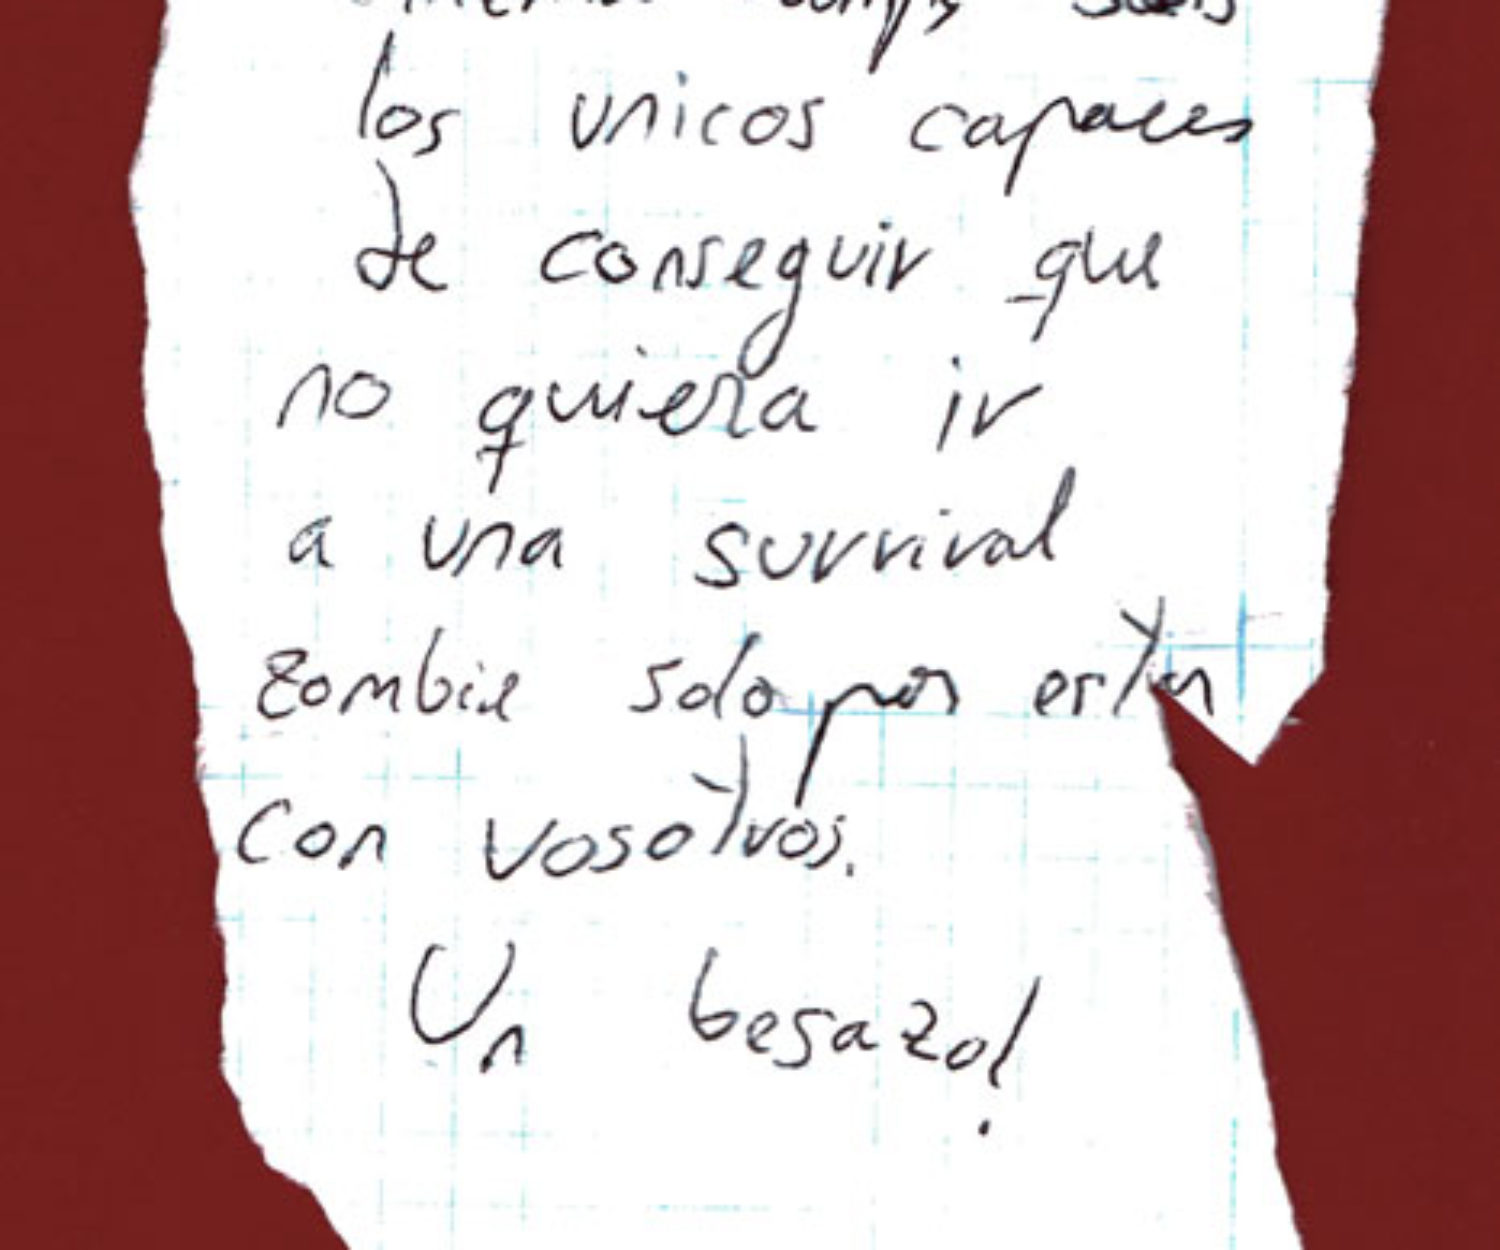 sois
los unicos capaces
de conseguir que
no quiera ir
a una survival
zombie solo por estar
con vosotros.
Un besazo!